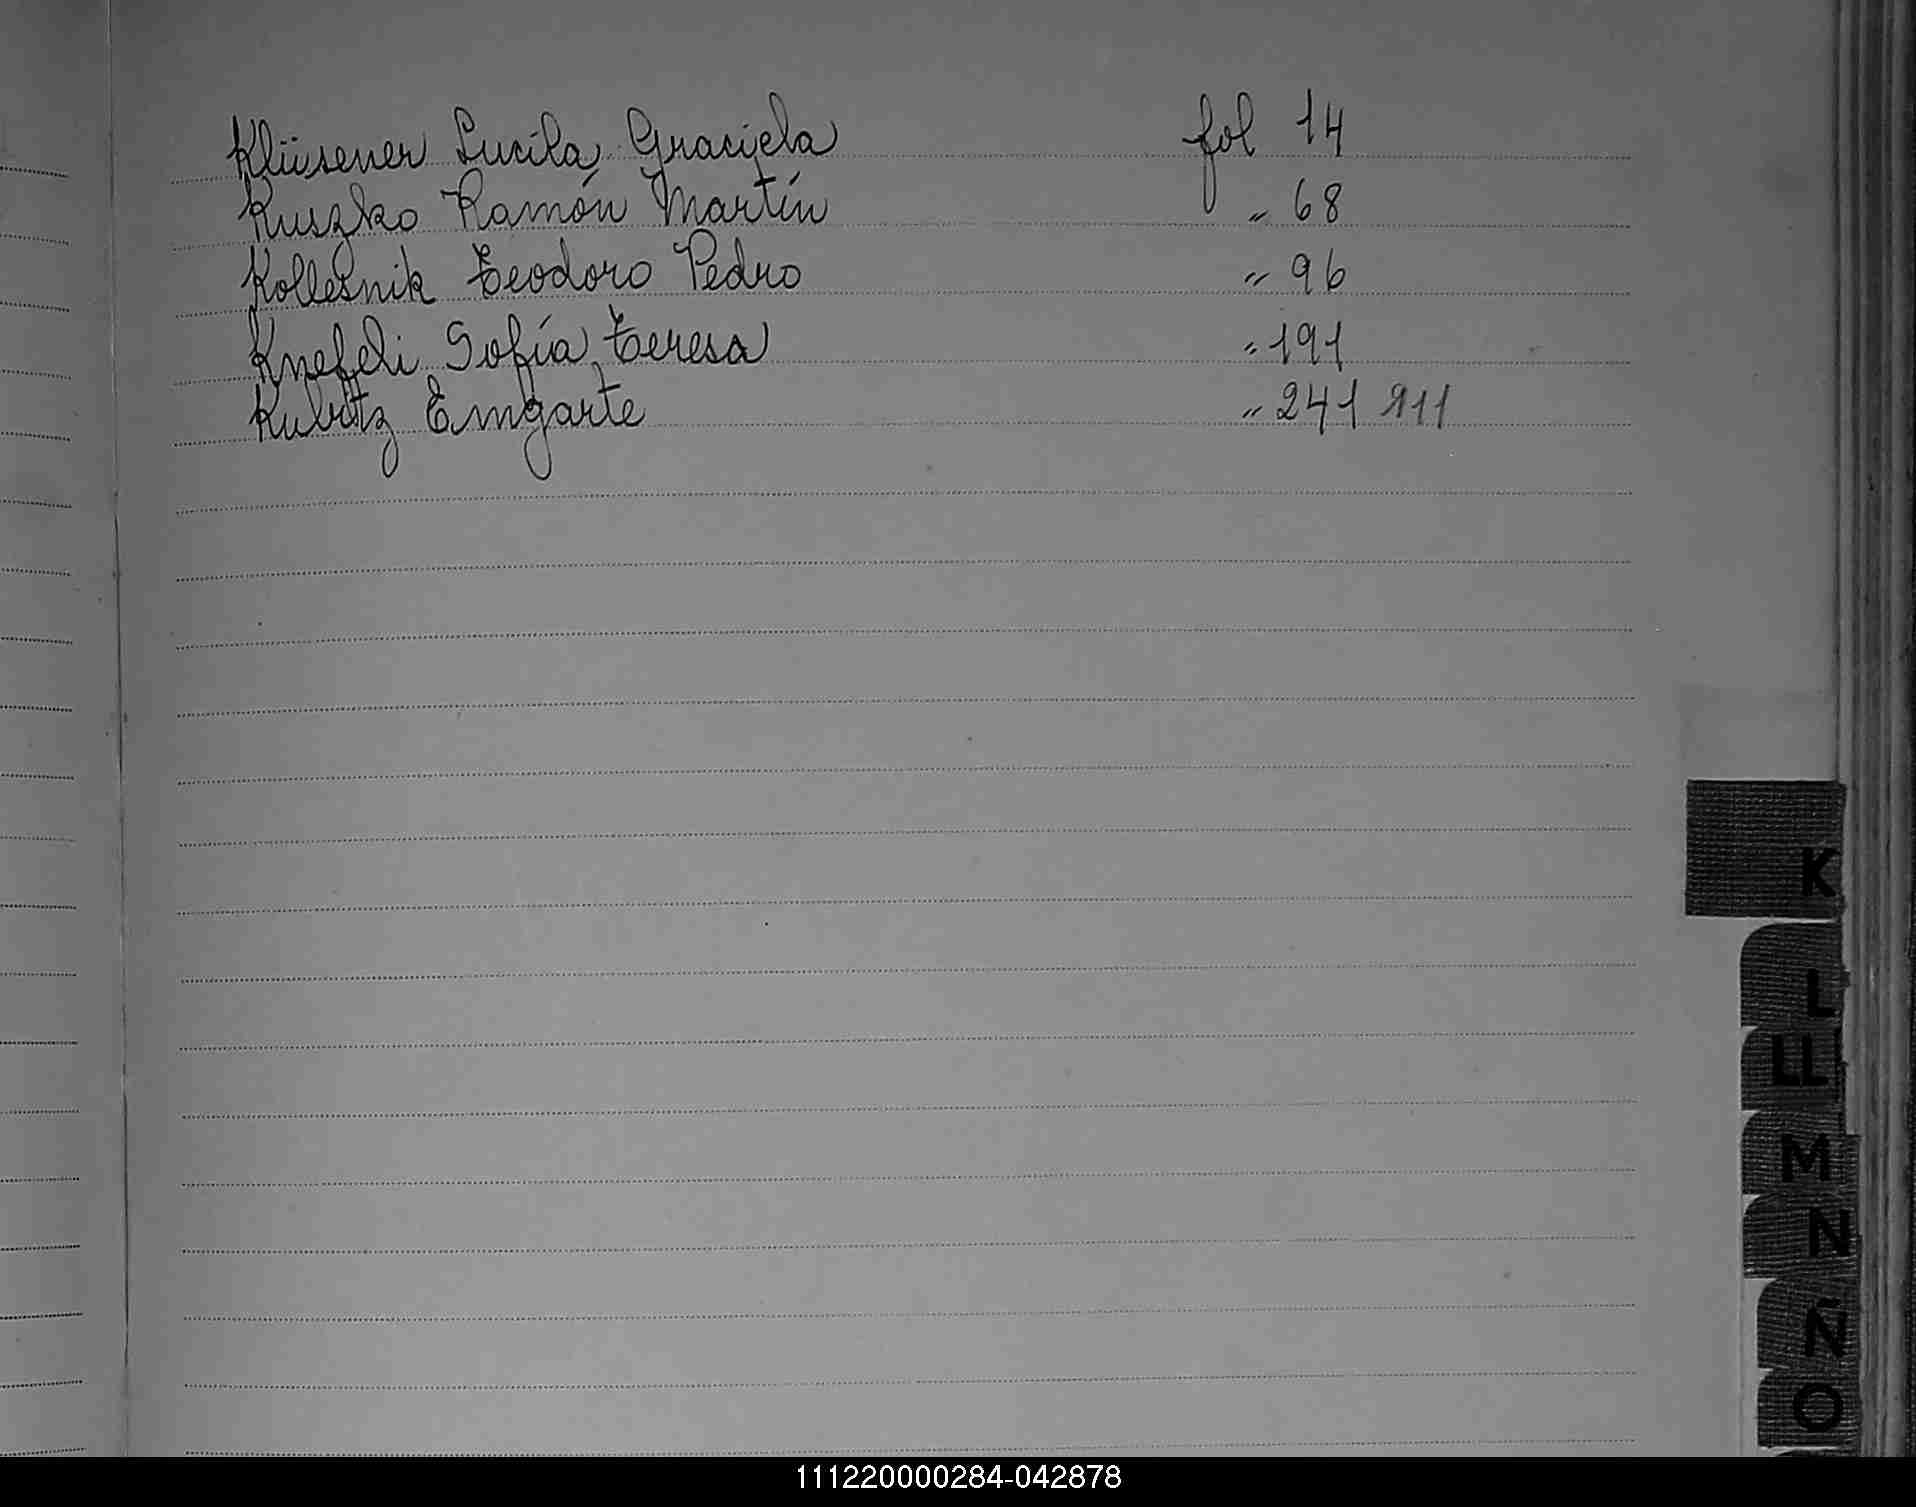 Klüsener Lucila Graciela fol 14
Kuszko Ramón Martín " 68
Kollesnik Teodoro Pedro " 96
Knefeli Sofía Teresa " 191
Kubitz Emgarte " 241 911
K
L
LL
M
N
Ñ
O
111220000284-042878